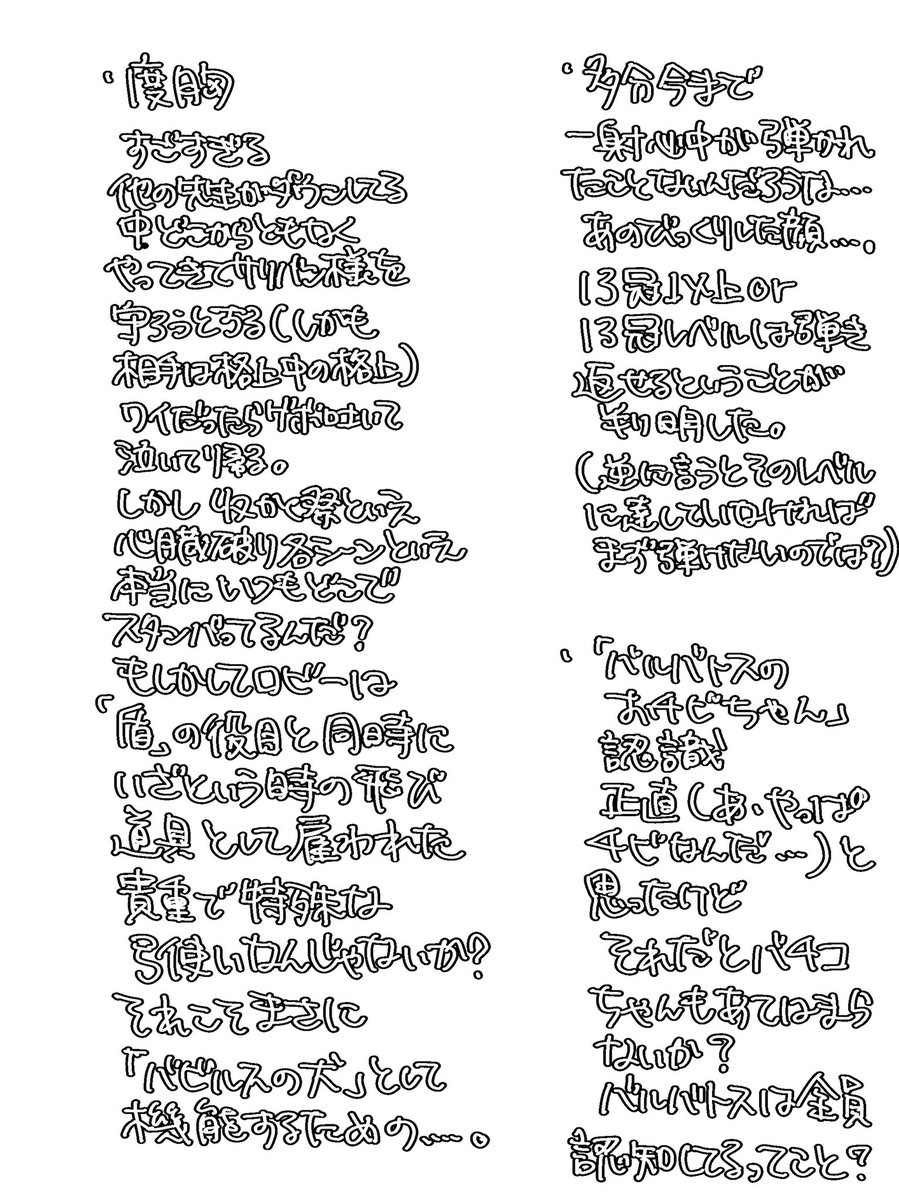 ・度胸
すごすぎる
他の先生がダウンしてる
中どこからともなく
やってきてサリバン様を
守ろうとする(しかも
相手は格上中の格上)
ワイだったらゲボ吐いて
泣いて帰る。
しかし収かく祭といえ
心臓破り各シーンといえ
本当にいつもどこで
スタンバってるんだ?
もしかしてロビーは
「盾」の役目と同時に
いざという時の飛び
道具として雇われた
貴重で特殊な
弓使いなんじゃないか?
それこそまさに
「バビルスの犬」として
機能するための……。
・多分今まで
一射心中が弾かれ
たことないんだろうな…
あのびっくりした顔…。
13冠以上or
13冠レベルは弾き
返せるということが
判明した。
(逆に言うとそのレベル
に達していなければ
まず弾けないのでは?)
・「バルバトスの
おチビちゃん」
認識
正直(あ、やっぱ
チビなんだ…)と
思ったけど
それだとバチコ
ちゃんもあてはまら
ないか?
バルバトスは全員
認知してるってこと?